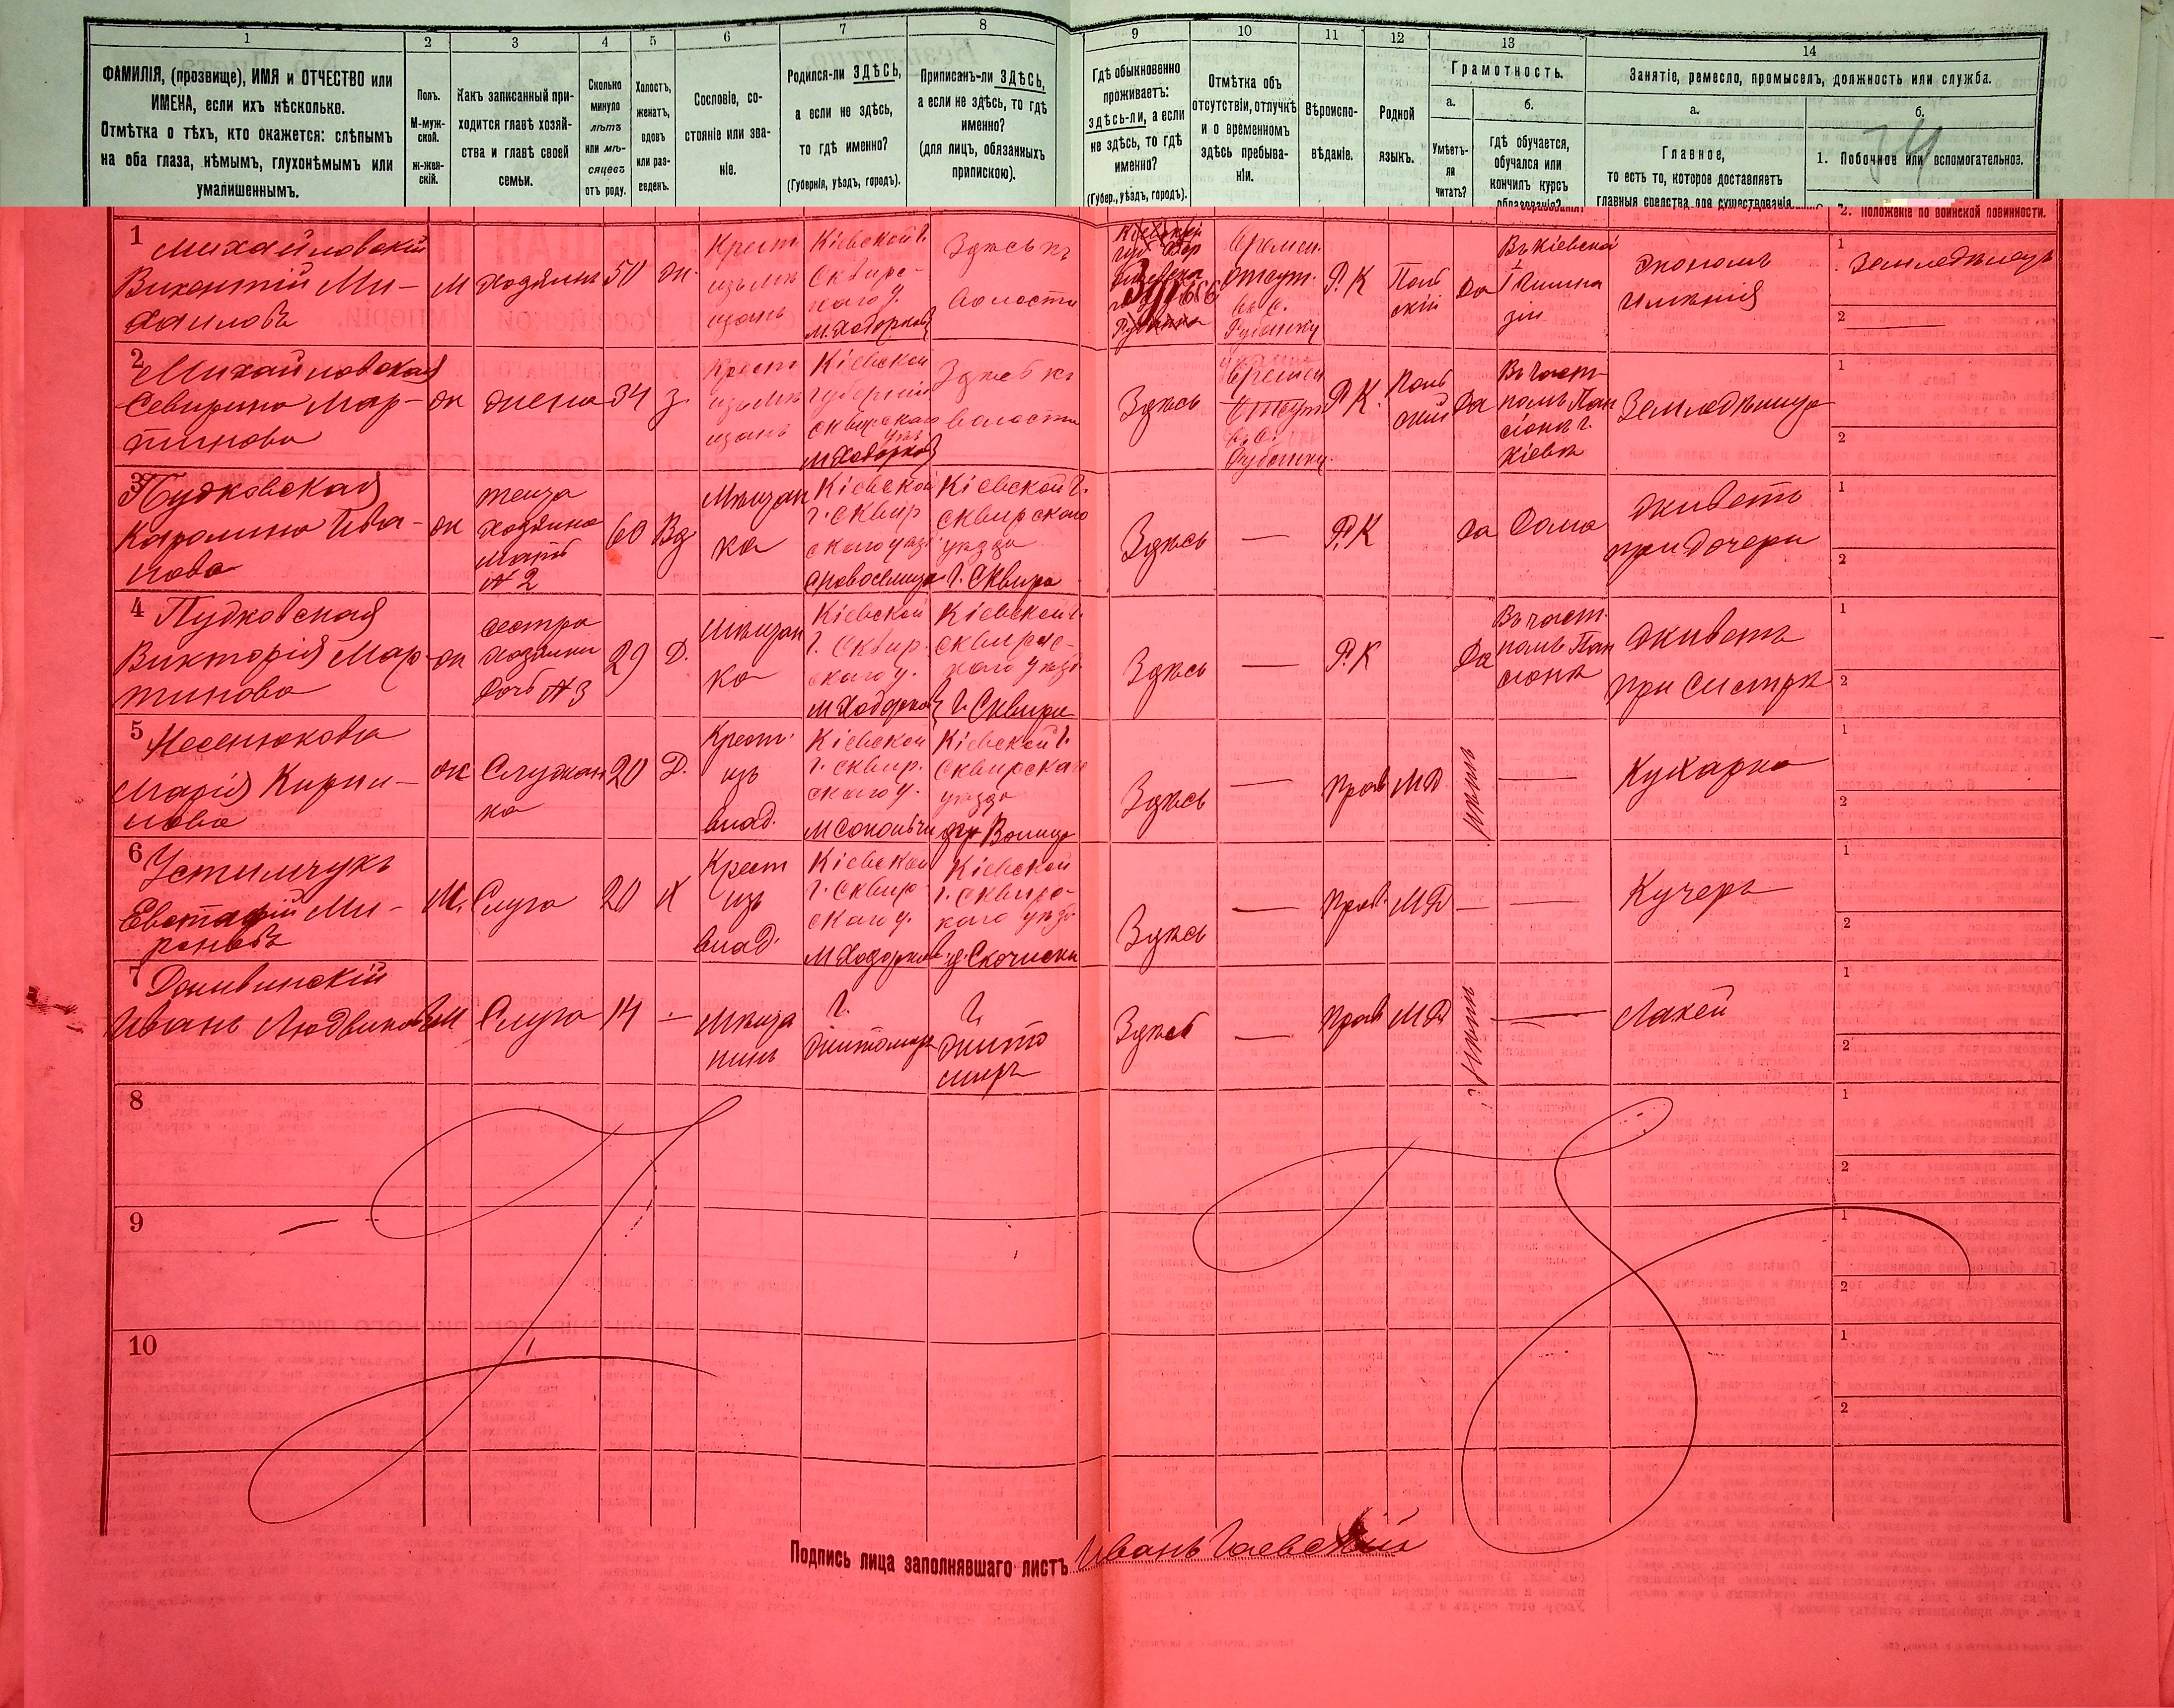 1 2 3 4 5 6 7 8 9 10 11 12 13 14
ФАМИЛІЯ, (прозвище), ИМЯ и ОТЧЕСТВО или
ИМЕНА, если ихъ нѣсколько.
Отмѣтка о тѣхъ, кто окажется: слѣпымъ
на оба глаза, нѣмымъ, глухонѣмымъ или
умалишеннымъ.
Полъ.
М-муж-
ской.
ж-жен-
скій.
Какъ записанный при-
ходится главѣ хозяй-
ства и главѣ своей
семьи.
Сколько
минуло
лѣтъ
или мѣ-
сяцевъ
отъ роду.
Холостъ,
женатъ,
вдовъ
или раз-
веденъ.
Сословіе, со-
стояніе или зва-
ніе.
Родился-ли ЗДѢСЬ,
а если не здѣсь,
то гдѣ именно?
(Губернія, уѣздъ, городъ).
Приписанъ-ли ЗДѢСЬ,
а если не здѣсь, то гдѣ
именно?
(для лицъ, обязанныхъ
припискою).
Гдѣ обыкновенно
проживаетъ:
здѣсь-ли, а если
не здѣсь, то гдѣ
именно?
(Губер., уѣздъ, городъ).
Отмѣтка объ
отсутствіи, отлучкѣ
и о временномъ
здѣсь пребыва-
ніи.
Вѣроиспо-
вѣданіе.
Родной
языкъ.
Грамотность.
а.
Умѣетъ-
ли
читать?
б.
гдѣ обучается,
обучался или
кончилъ курсъ
образованія?
Занятіе, ремесло, промыселъ, должность или служба.
а.
Главное,
то есть то, которое доставляетъ
главныя средства для существованія.
б.
34
1. Побочное или вспомогательное.
2. Положеніе по воинской повинности.
1 Михайловскій
Викентій Ми-
хаиловъ
М
хозяинъ
50
ж.
Крест
изъ мѣ
щанъ
Кіевской г.
Сквирс-
каго у.
м. Ходорковъ
Здѣсь къ
волости
Времен.
отсут.
въ с.
Р. К
Поль
скій
да
Въ Кіевской
1 Гимна
зіи
экономъ
имѣнія
1 Земледѣлецъ
2
2 Михайловская
Северина Мар-
тинова
ж
жена
34
з.
Крест
изъ мѣ
щанъ
Кіевской
губерніи
сквирскаго
уѣз
м Ходорковъ
Здѣсь къ
волости
Здѣсь
Времен
отсут
въ с.
Р. К.
Поль
скій
да
Въ част-
номъ Пан
сіонѣ г.
Кіевѣ
Земледѣлица
1
2
3 Пудковская
Каролина Ива-
нова
ж
теща
хозяина
мать
№ 2
60
Вд
Мѣщан
ка
Кіевской
г. Сквир
скаго уѣзд
с Новоселица
Кіевской г.
сквирскаго
уѣзда
г. Сквира
Здѣсь
—
Р. К
да
Дома
живетъ
при дочери
1
2
4 Пудковская
Викторія Мар-
тинова
ж
сестра
хозяйки
дочь № 3
29
Д.
Мѣщан
ка
Кіевской
г. Сквир.
скаго у.
м Ходорковъ
Кіевской г.
сквирс-
каго уѣзд
г. Сквира
Здѣсь
—
Р. К
да
Въ част-
номъ Пан
сіонѣ
живетъ
при сестрѣ
1
2
5
Марія Кирил-
лова
ж
Служан
ка
20
Д.
Крест.
изъ
влад.
Кіевской
г. сквир.
скаго у.
Кіевской г.
Сквирскаго
уѣзда
Здѣсь
—
Прав
МР
—
Кухарка
1
2
6 Устимчукъ
Евстафій Ми-
роновъ
М.
Слуга
20
Х
Крест
изъ
влад.
Кіевской
г. Сквир-
скаго у.
м Ходорковъ
Кіевской
г. сквирс-
каго уѣзд
Здѣсь
—
Прав.
МР
—
—
Кучеръ
1
2
7
Иванъ Людвиковъ
М
Слуга
14
—
Мѣща
нинъ
г.
Житомиръ
г.
Жито
миръ
Здѣсь
—
Прав
МР
—
Лакей
1
2
8
1
2
9
1
2
10
1
2
Подпись лица заполнявшаго листъ Иванъ Гаевскій